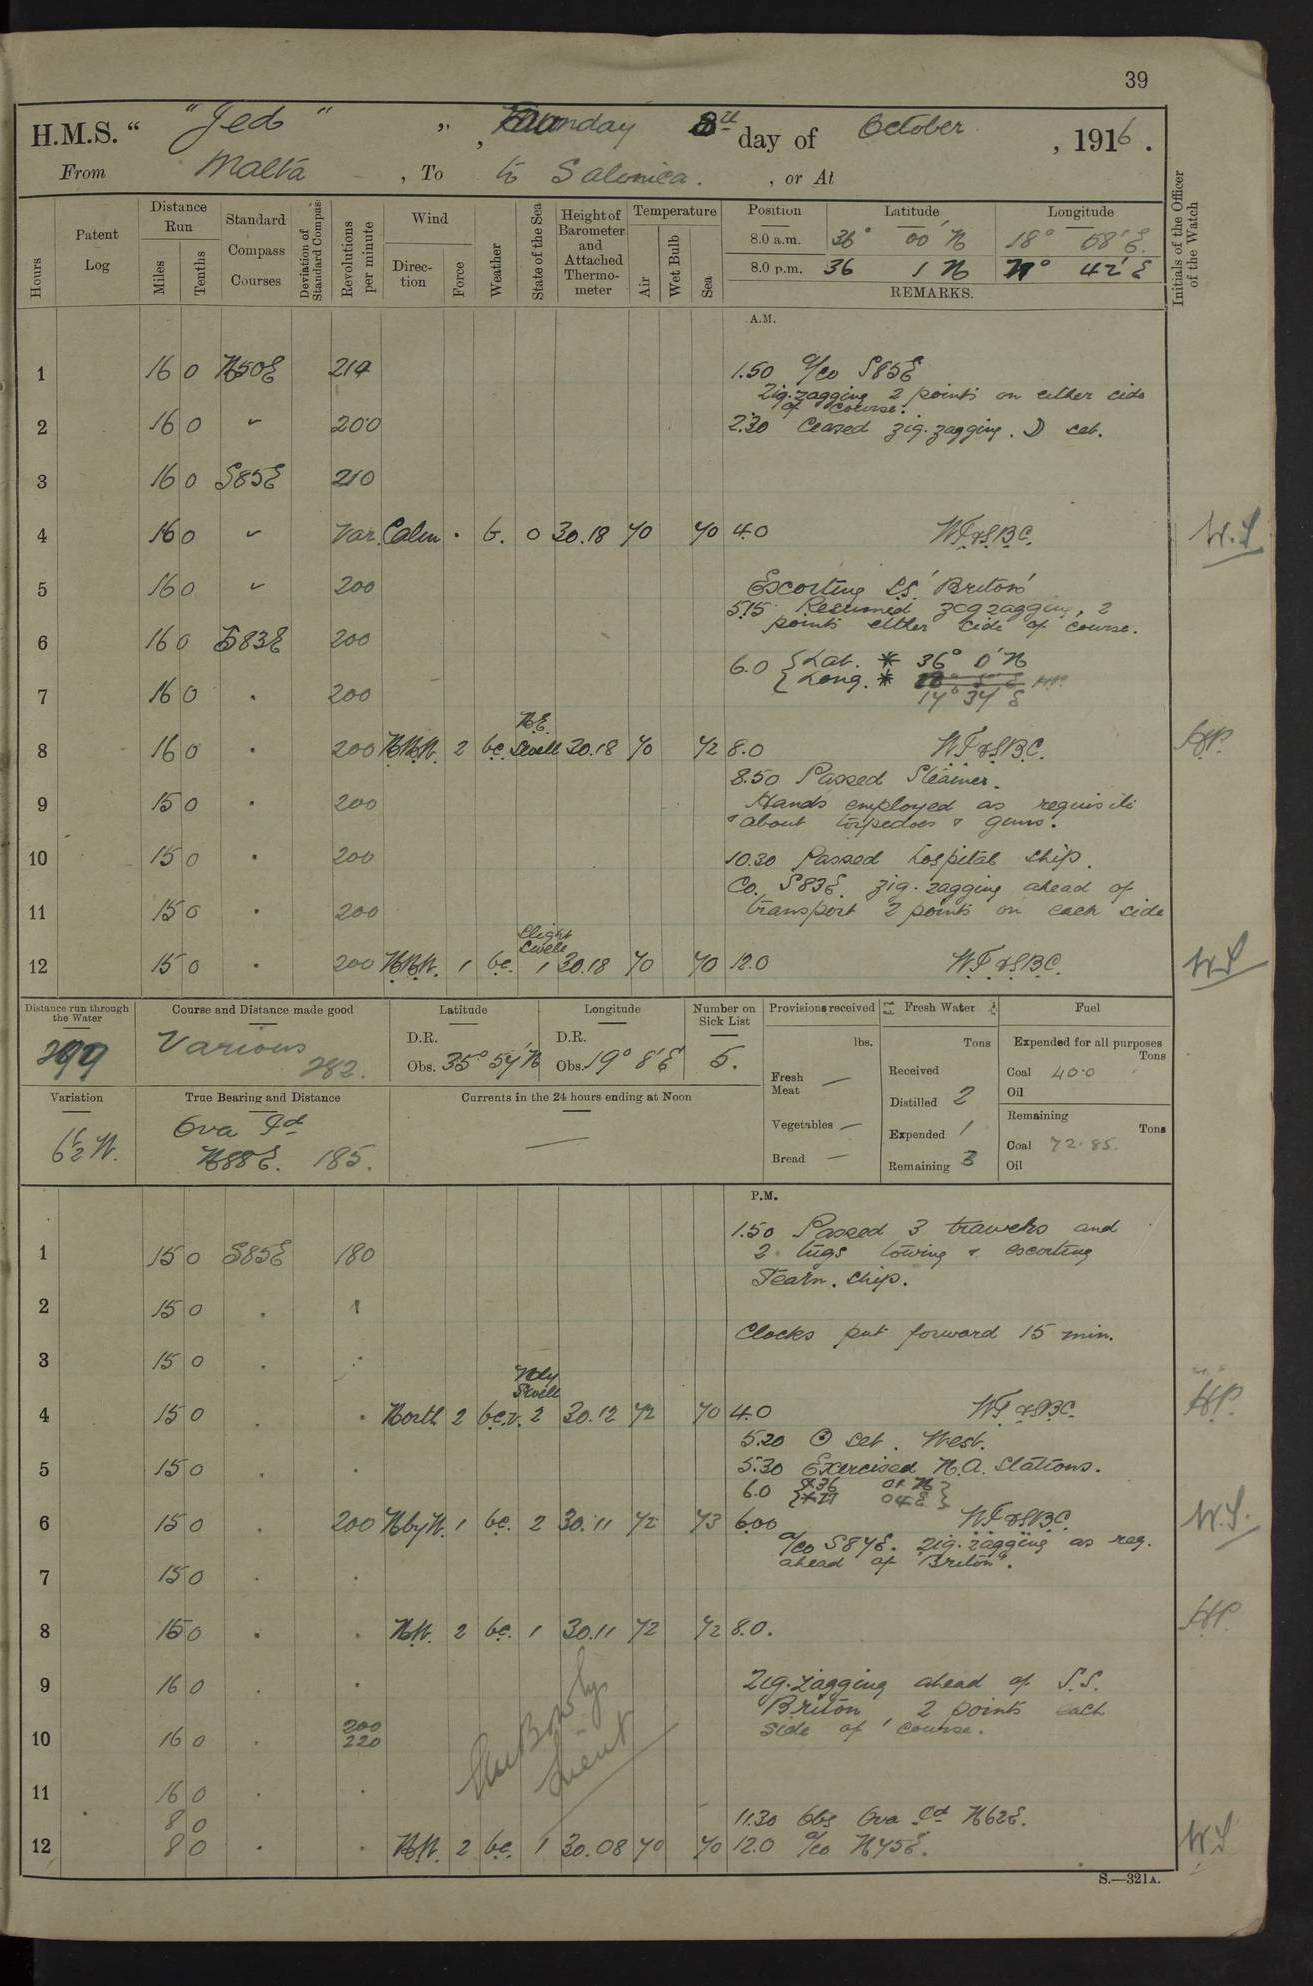 39
H.M.S. " "Jed" ", Sunday 8th day of October, 1916.
From Malta, To to Salonica., or At
Hours Patent Log Distance Run Miles Tenths Standard Compass Courses Deviation of Standard Compass Revolutions per minute Wind Direction Force Weather State of the Sea Height of Barometer and Attached Thermometer Temperature Air Wet Bulb Sea Position Latitude Longitude Initials of the Officer of the Watch
8.0 a.m. 36° 00' N 18° 08' E.
8.0 p.m. 36 1 N 42' E
REMARKS.
A.M.
1 16 0 N50E 214 1.50 a/co S85E
Zig-zagging 2 points on either side
of course.
2 16 0 " 200 2.30 Ceased zig-zagging. ☽ set.
3 16 0 S85E 210
4 16 0 " Var. Calm · b. 0 30.18 70 70 4.0 W.T.&S.B.C. W.S
5 16 0 " 200 Escorting SS 'Briton'
5.15 Resumed zig zagging, 2
points either side of course.
6 16 0 S83E 200
6.0 { Lat. * 36° 0' N
7 16 0 . 200 { Long. *
17° 34' E
N.E.
8 16 0 . 200 N.N.W. 2 b.c. Swell 30.18 70 72 8.0 W.T.&S.B.C. H.P.
8.50 Passed Steamer.
9 15 0 . 200 Hands employed as requisite
& about torpedoes & guns.
10 15 0 . 200 10.30 Passed hospital ship.
Co. S83E. zig-zagging ahead of
11 15 0 . 200 transport 2 points on each side
Slight
Swell
12 15 0 . 200 N.N.W. 1 b.c. 1 30.18 70 70 12.0 W.T.&S.B.C. W.S
Distance run through the Water Course and Distance made good Latitude Longitude Number on Sick List Provisions received Fresh Water Fuel
Various 282. D.R. D.R. 5.
Obs. 35° 57' N Obs. 19° 8' E
lbs. Tons Expended for all purposes Tons
Fresh Meat — Received Coal 40.0
Distilled 2 Oil
Variation True Bearing and Distance Currents in the 24 hours ending at Noon
6½ W. Ova Id —
N88E. 185.
Vegetables — Expended 1 Remaining Tons
Coal 72.85.
Bread — Remaining 3 Oil
P.M.
1.50 Passed 3 trawlers and
1 15 0 S85E 180 2 tugs towing & escorting
Fearn. ship.
2 15 0 . "
Clocks put forward 15 min.
3 15 0 . "
Nly
Swell
4 15 0 . . North 2 b.c.v. 2 30.12 72 70 4.0 W.T.&S.B.C. H.P.
5.20 ☉ set. West.
5 15 0 . . 5.30 Exercised N.A. Stations.
6.0 { * 36 01 N }
04 E }
6 15 0 . 200 NbyW. 1 b.c. 2 30.11 72 73 6.00 W.T.&S.B.C. W.S.
a/co S87E. Zig-zagging as req.
7 15 0 . . ahead of "Briton".
8 15 0 . . N.W. 2 b.c. 1 30.11 72 72 8.0. H.P.
9 16 0 . . Zig-zagging ahead of S.S.
Briton, 2 points each
10 16 0 . 200 side of course.
220
11 16 0 . .
8 0 11.30 Obs Ova Id N62E.
12 8 0 . . N.W. 2 b.c. 1 30.08 70 70 12.0 a/co N75E. W.S
S.—321A.